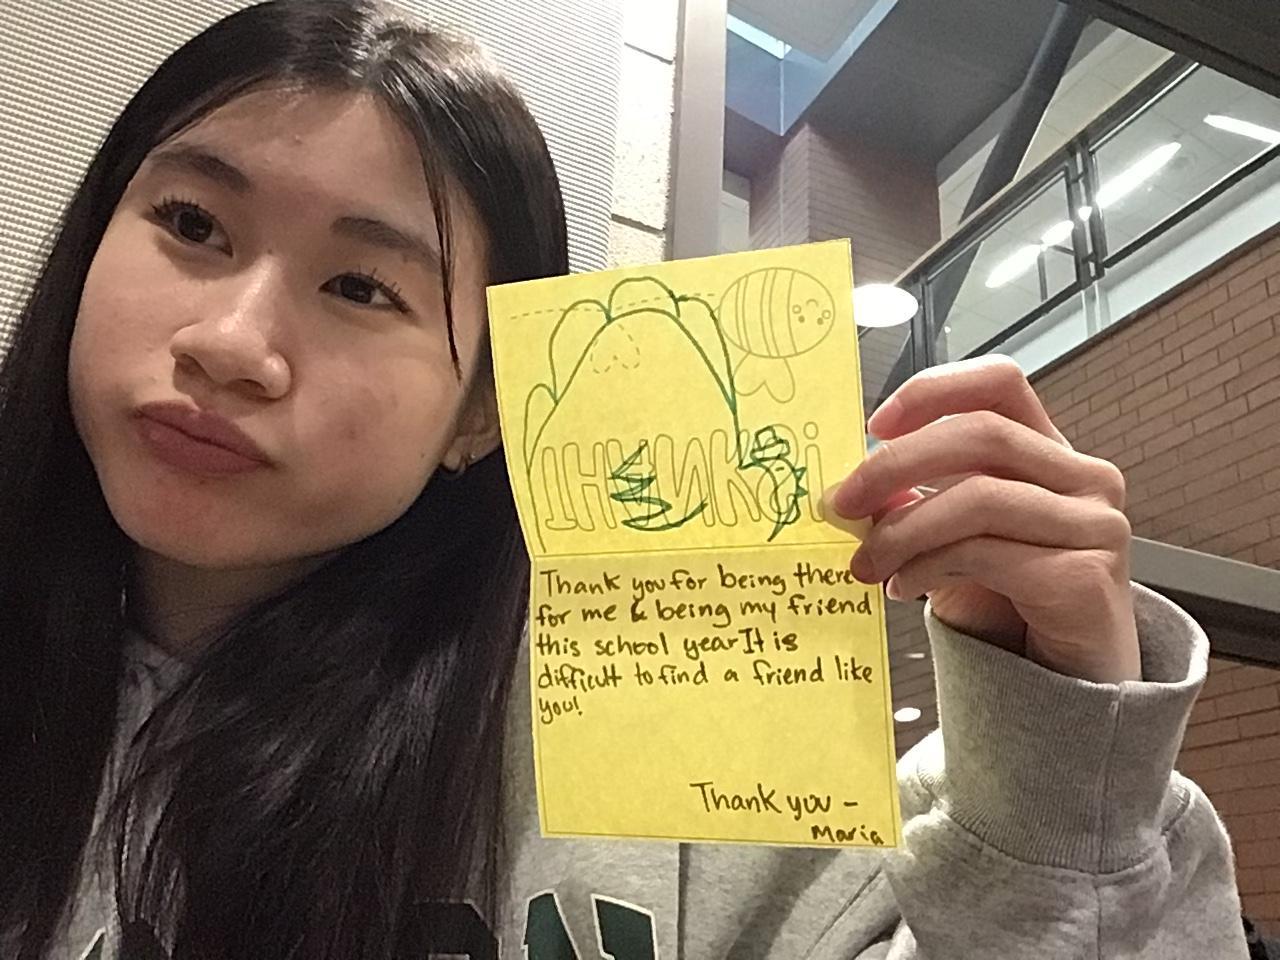 Thank you for being there
for me & being my friend
this school year It is
difficult to find a friend like
you!
Thank you -
Maria